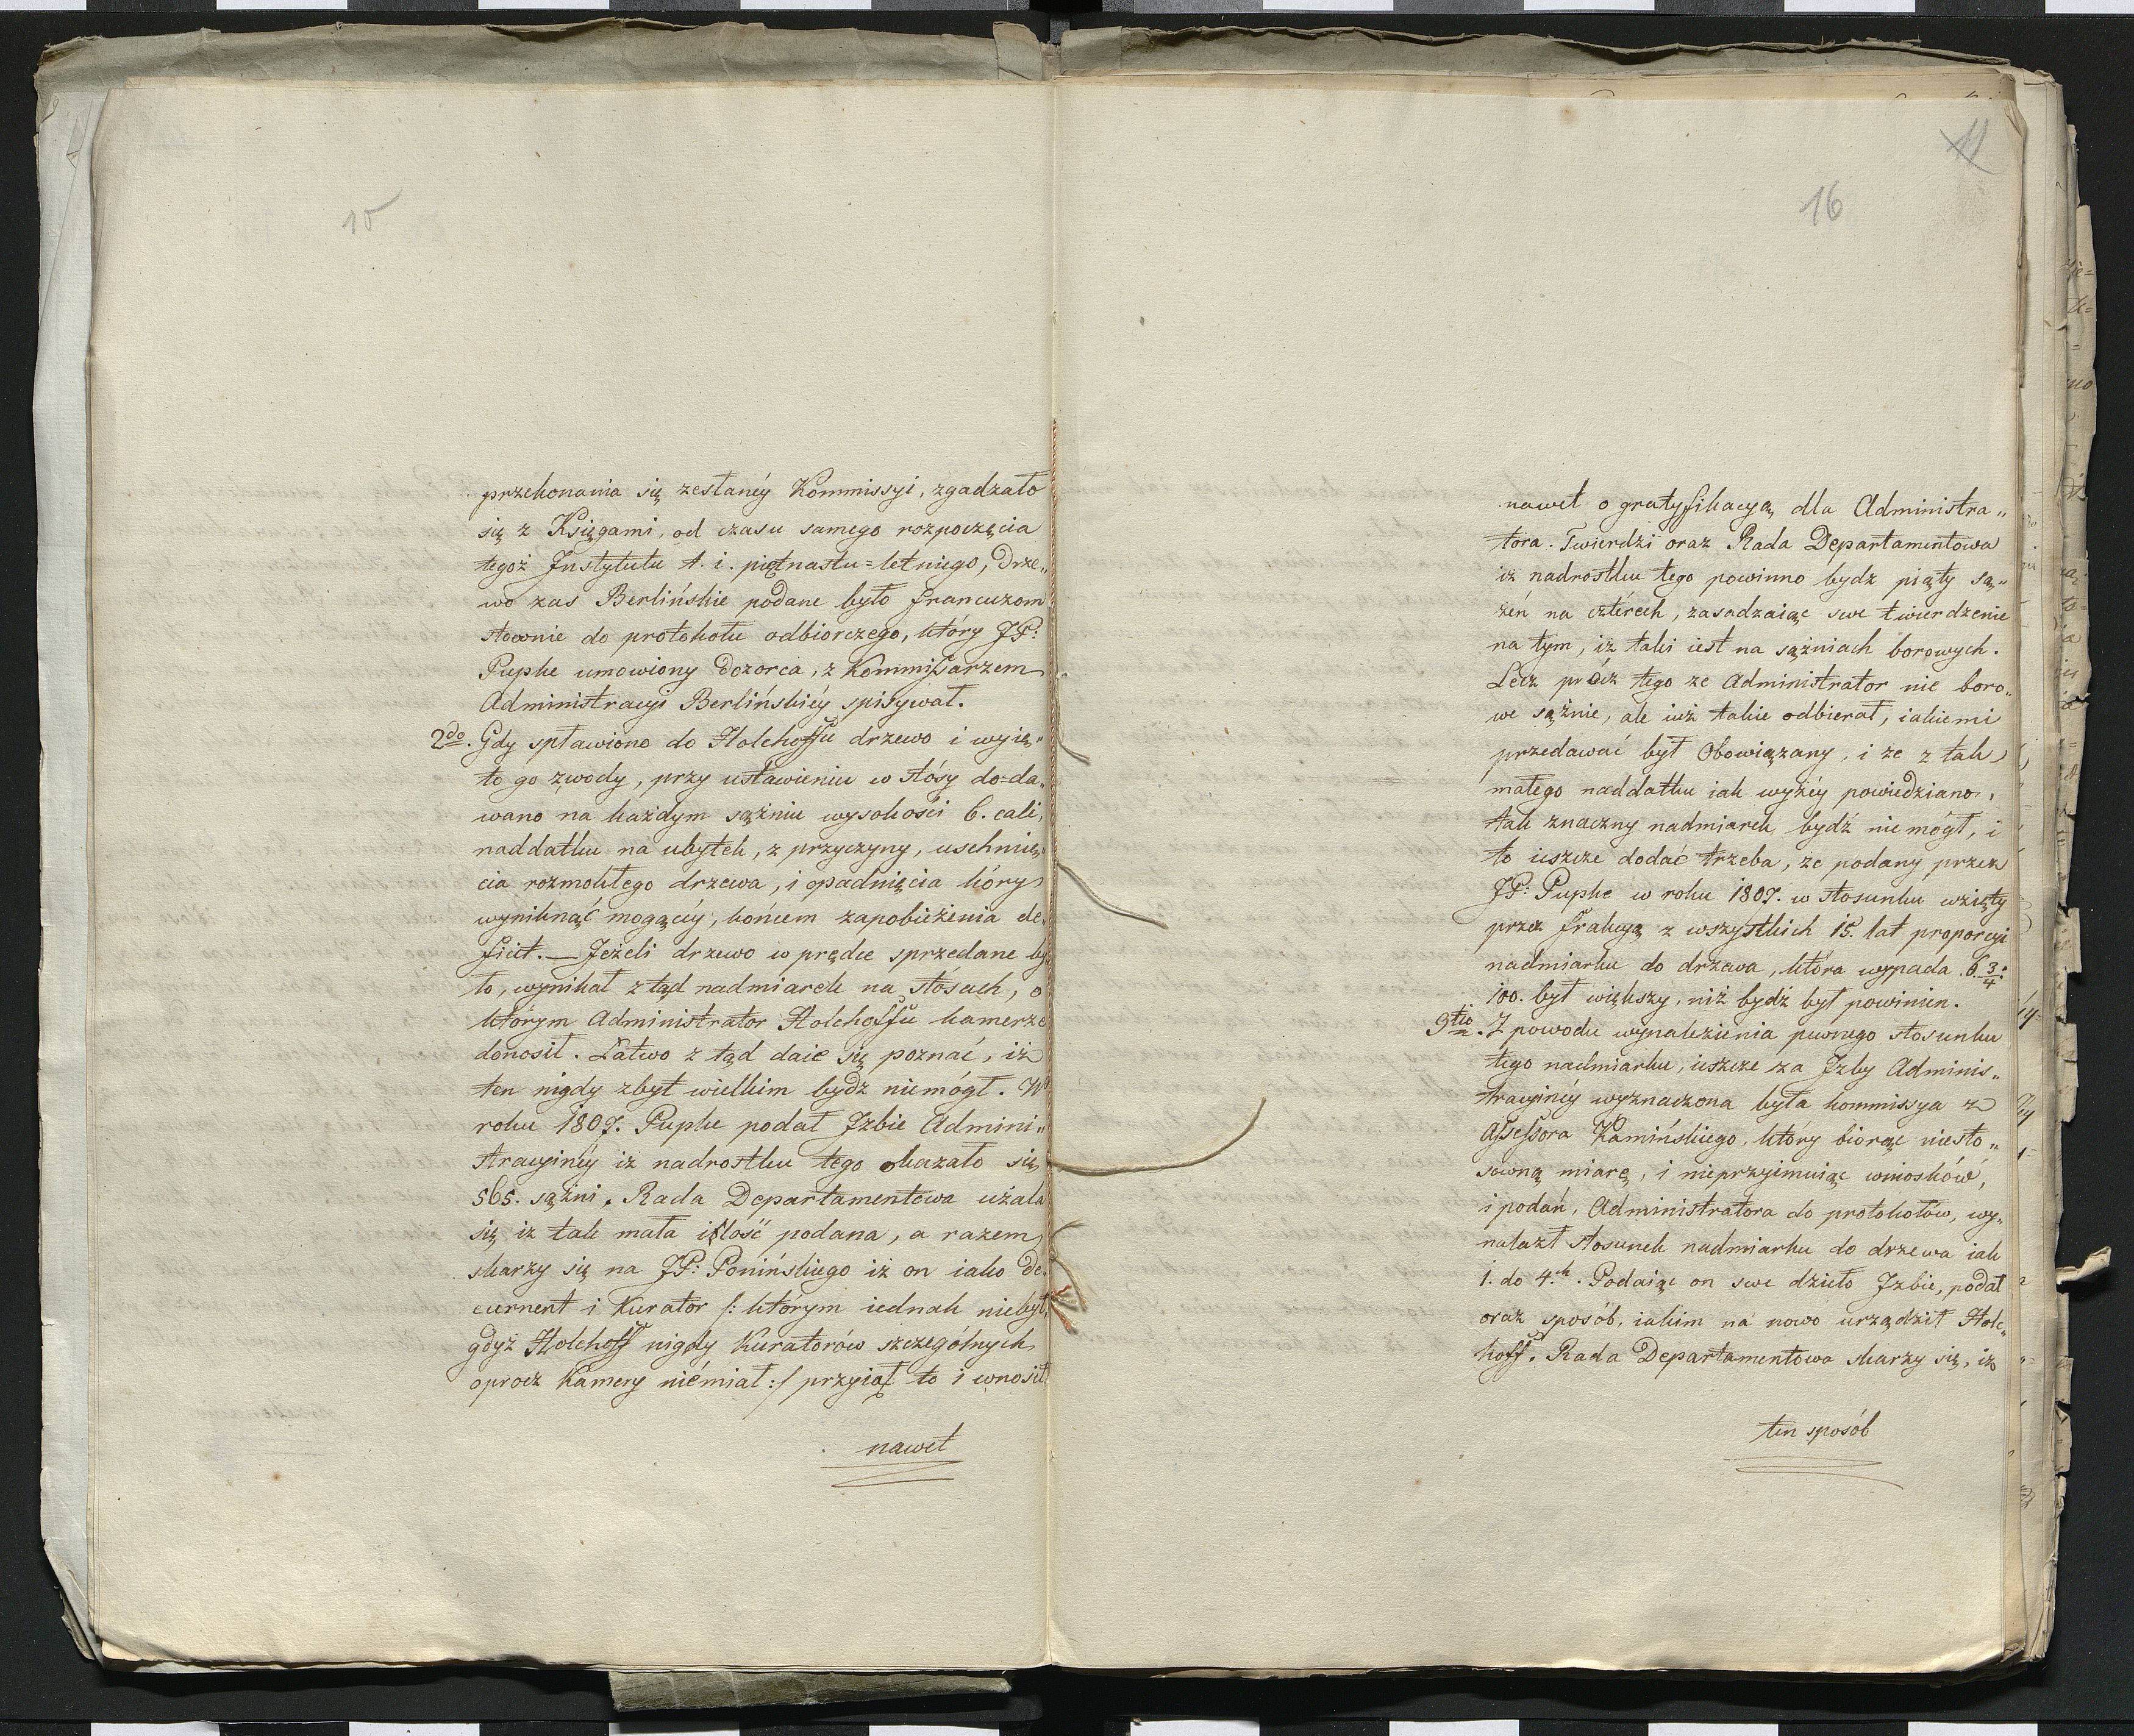 15
przekonania się zesłanéy Kommissyi, zgadzało
się z Księgami, od czasu samego rozpoczęcia
tegoż Jnstytutu t. i. piętnastu=letniego, Drze„
wo zas Berlińskie podane było francuzom
słownie do protokołu odbiorczego, który JP:
Pupke umowiony Dozorca, z Kommissarzem
Administracyi Berlińskiéy spisywał.
2do. Gdy spławiono do Holchoffu drzewo i wyię„
to go zwody, przy ustawieniu w stósy do=da„
wano na każdym sążniu wysokości 6. cali,
naddatku na ubytek, z przyczyny, uschnię„
cia rozmokłego drzewa, i opadnięcia kóry
wyniknąć mogącéy, końcem zapobieżenia de„
ficit. — Jeżeli drzewo w prędce sprzedane by„
ło, wynikał z tąd nadmiarek na stósach, o
którym Administrator Holchoffu kamerze
donosił. Łatwo z tąd daie się poznać, iż
ten nigdy zbyt wielkim bydź niemógł. W
roku 1807. Pupke podał Jzbie Admini„
stracyinéy iż nadrostku tego okazało się
565. sążni. Rada Departamentowa użala
się iz tak mała ilość podana, a razem
skarzy się na JP: Ponińskiego iż on iako De„
cernent i Kurator /: którym iednak niebył,
gdyż Holchoff nigdy Kuratorów szczególnych
oprocz Kamery niémiał :/ przyiął to i wnosił
nawet
11
16
nawet o gratyfikacyą dla Administra„
tora. Twierdzi oraz Rada Departamentowa
iż nadrostku tego powinno bydz piąty są„
żeń na cztérech, zasadzaiąc swe twierdzenie
na tym, iż taki iest na sążniach borowych.
Lecz prócz tego ze Administrator nie boro„
we sążnie, ale iuż takie odbierał, iakiemi
przedawać był Obowiązany, i ze z tak
małego naddatku iak wyżéy powiedziano,
tak znaczny nadmiarek bydź nie mógł, i
to ieszcze dodać trzeba, ze podany przez
JP: Pupke w roku 1807. w stosunku wzięty
przez frakcyą z wszystkich 15. lat proporcyi
nadmiarku do drzewa, która wypada 6 3/4:
100. był większy, niż bydź był powinien.
3tio. Z powodu wynalezienia pewnego stosunku
tego nadmiarku, ieszcze za Jzby Adminis„
tracyinéy wyznaczona była kommissya z
Assessora Kamińskiego, który biorąc niesto„
sowną miarę, i nieprzyimuiąc wniosków,
i podań, Administratora do protokołów, wy„
nalazł stosunek nadmiarku do drzewa iak
1. do 4.ch. Podaiąc on swe dzieło Jzbie, podał
oraz sposób, iakim na nowo urządził Holc„
hoff. Rada Departamentowa skarzy się, iż
ten sposób